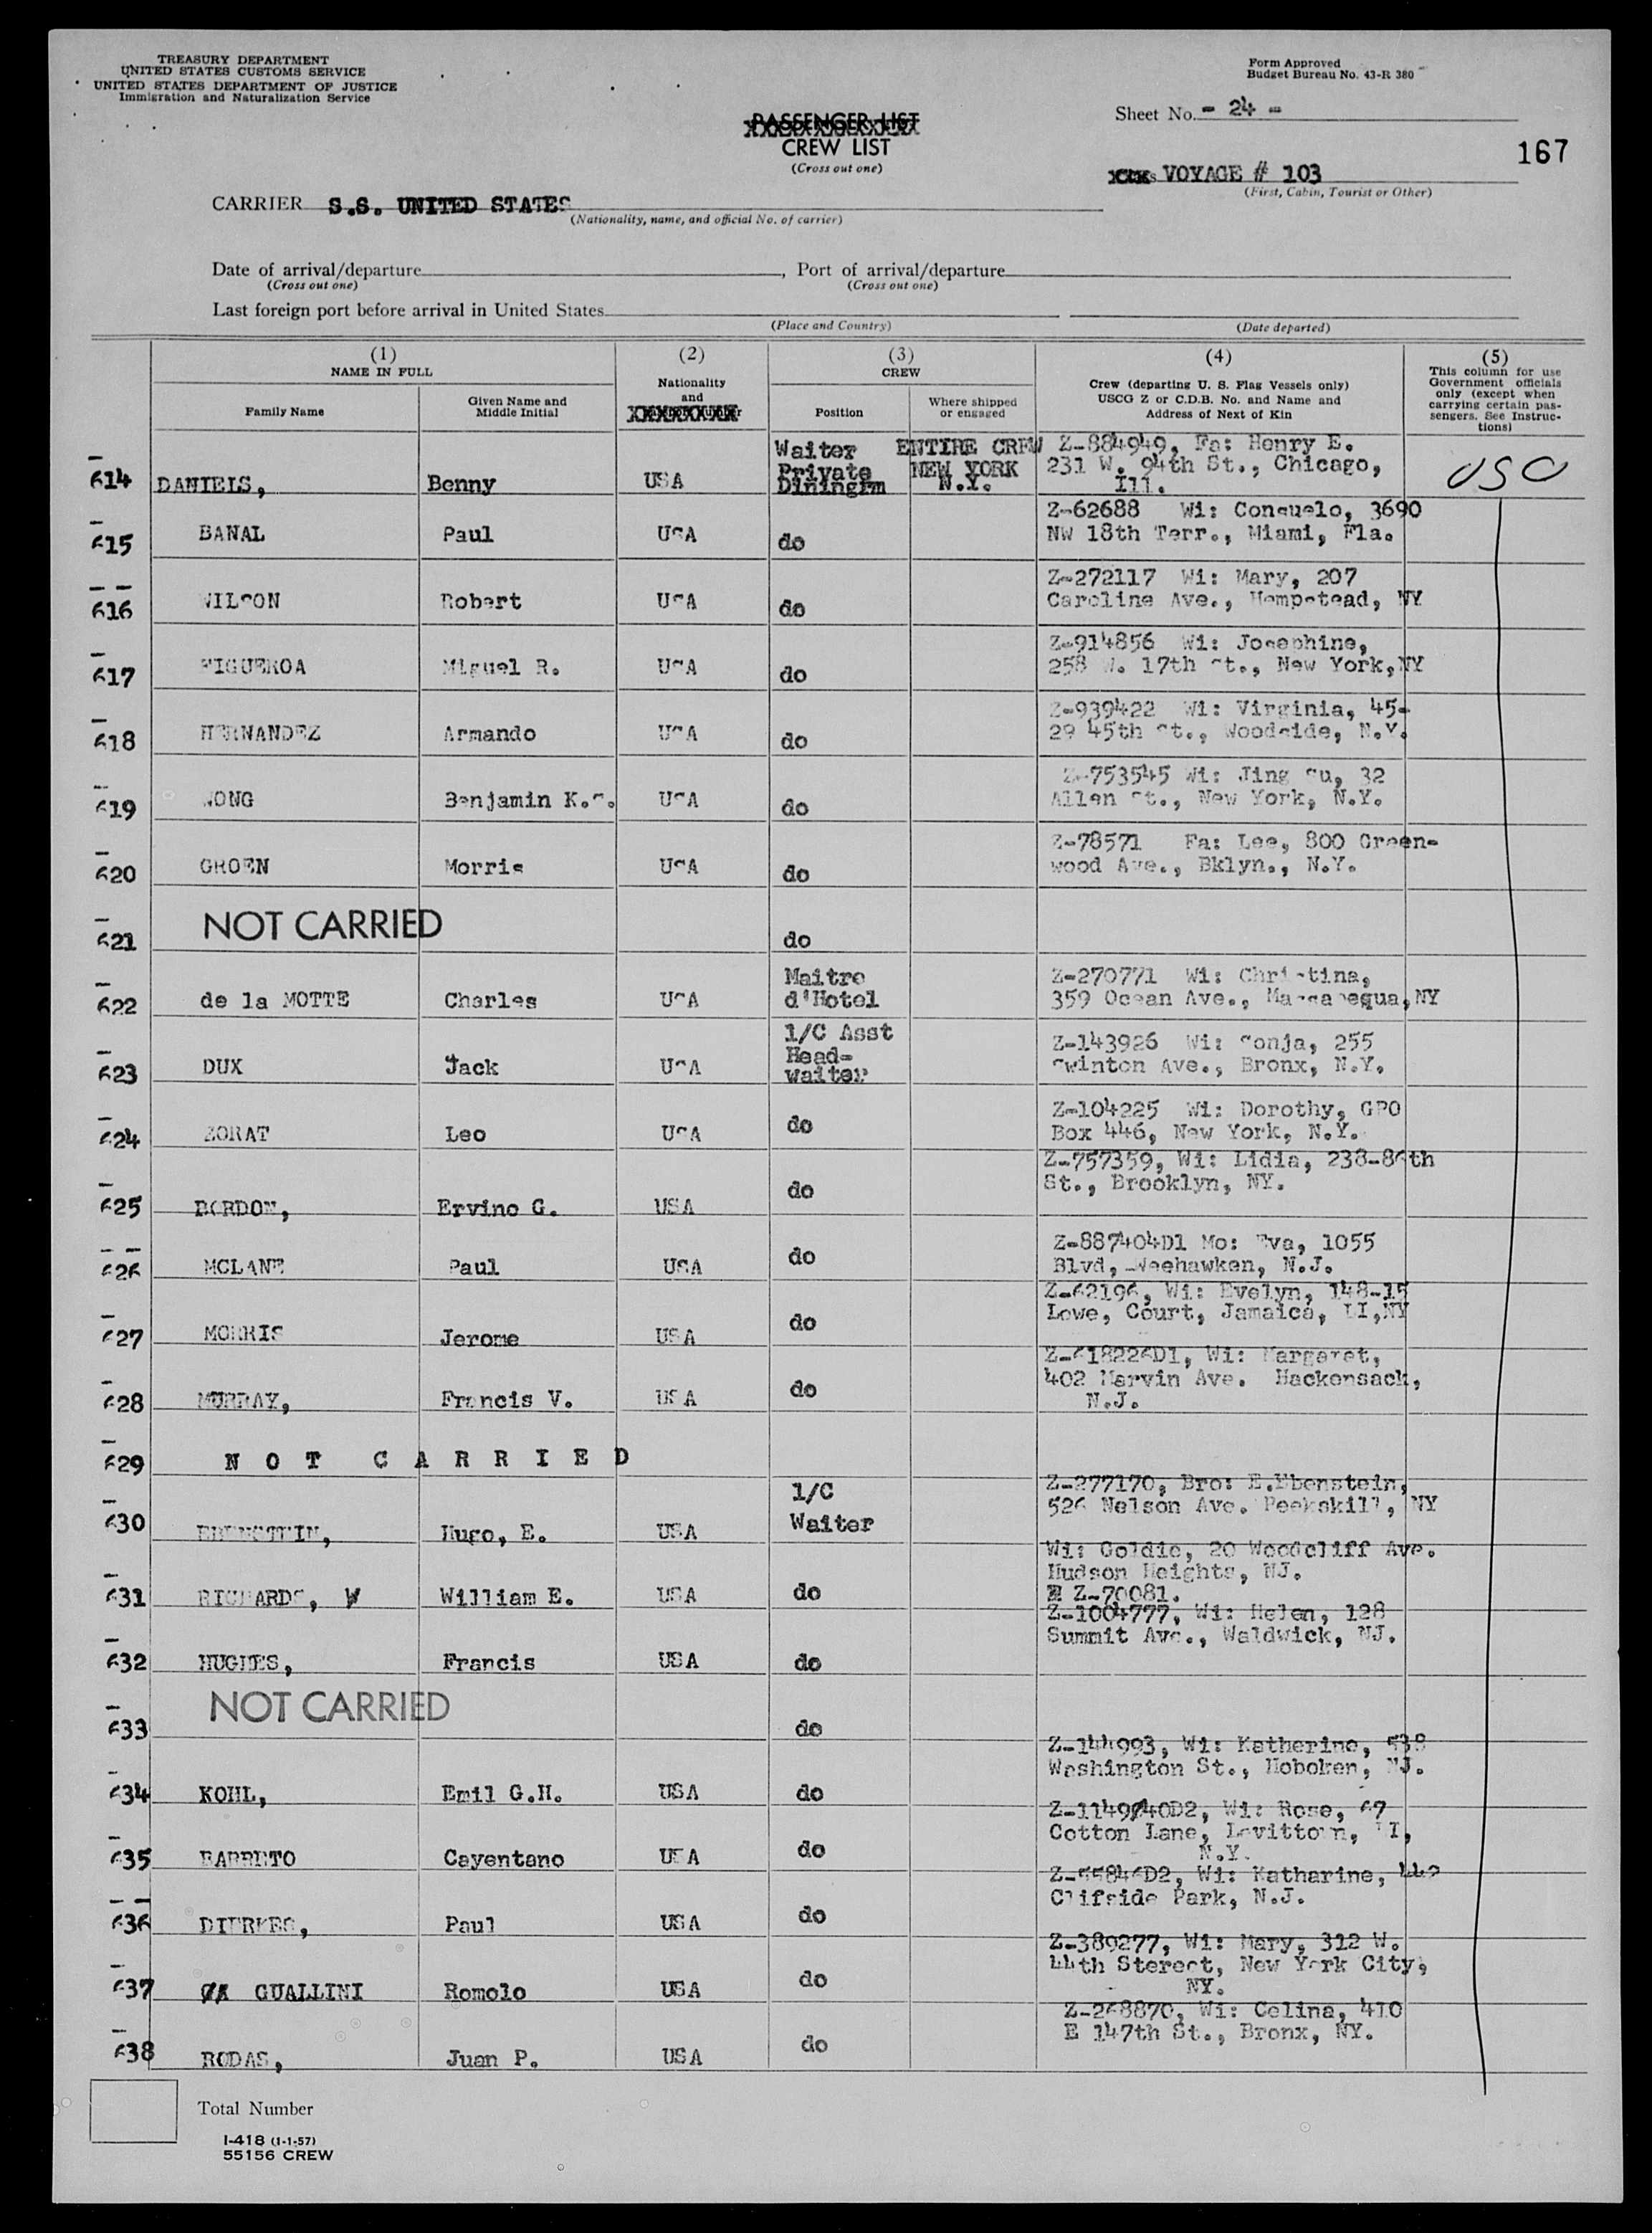 TREASURY DEPARTMENT
UNITED STATES CUSTOMS SERVICE
UNITED STATES DEPARTMENT OF JUSTICE
Immigration and Naturalization Service
Form Approved
Budget Bureau No. 43-R 380
PASSENGER LIST
CREW LIST
(Cross out one)
Sheet No. - 24 -
167
VOYAGE # 103
(First, Cabin, Tourist or Other)
CARRIER S.S. UNITED STATES
(Nationality, name, and official No. of carrier)
Date of arrival/departure , Port of arrival/departure
(Cross out one) (Cross out one)
Last foreign port before arrival in United States
(Place and Country) (Date departed)
(1) (2) (3) (4) (5)
NAME IN FULL
Family Name
Given Name and
Middle Initial
Nationality
and
CREW
Position
Where shipped
or engaged
Crew (departing U. S. Flag Vessels only)
USCG Z or C.D.B. No. and Name and
Address of Next of Kin
This column for use
Government officials
only (except when
carrying certain pas-
sengers. See Instruc-
tions)
614 DANIELS, Benny USA Waiter Private DiningRm ENTIRE CREW NEW YORK N.Y. Z-884949, Fa: Henry E.
231 W. 94th St., Chicago,
Ill.
USC
615 BANAL Paul USA do Z-62688 Wi: Consuelo, 3690
NW 18th Terr., Miami, Fla.
616 WILSON Robert USA do Z-272117 Wi: Mary, 207
Caroline Ave., Hempstead, NY
617 FIGUEROA Miguel R. USA do Z-914856 Wi: Josephine,
258 W. 17th St., New York,NY
618 HERNANDEZ Armando USA do Z-939422 Wi: Virginia, 45-
29 45th St., Woodside, N.Y.
619 WONG Benjamin K.S. USA do Z-753545 Wi: Jing Su, 32
Allen St., New York, N.Y.
620 GROEN Morris USA do Z-78571 Fa: Lee, 800 Green-
wood Ave., Bklyn., N.Y.
621 NOT CARRIED do
622 de la MOTTE Charles USA Maitre d'Hotel Z-270771 Wi: Christina,
359 Ocean Ave., Massapequa,NY
623 DUX Jack USA 1/C Asst Head-waiter Z-143926 Wi: Sonja, 255
Swinton Ave., Bronx, N.Y.
624 ZORAT Leo USA do Z-104225 Wi: Dorothy, GPO
Box 446, New York, N.Y.
625 BORDON, Ervino G. USA do Z-757359, Wi: Lidia, 238-86th
St., Brooklyn, NY.
626 MCLANE Paul USA do Z-887404D1 Mo: Eva, 1055
Blvd, Weehawken, N.J.
627 MORRIS Jerome USA do Z-62196, Wi: Evelyn, 148-15
Lowe, Court, Jamaica, LI,NY
628 MURRAY, Francis V. USA do Z-618226D1, Wi: Margaret,
402 Marvin Ave. Hackensack,
N.J.
629 N O T C A R R I E D
630 EBENSTEIN, Hugo, E. USA 1/C Waiter Z-277170, Bro: E.Ebenstein,
526 Nelson Ave. Peekskill, NY
631 RICHARDS, W William E. USA do Wi: Goldie, 20 Woodcliff Ave.
Hudson Heights, NJ.
Z-70081.
632 HUGHES, Francis USA do Z-1004777, Wi: Helen, 128
Summit Ave., Waldwick, NJ.
633 NOT CARRIED do
634 KOHL, Emil G.H. USA do Z-144993, Wi: Katherine, 538
Washington St., Hoboken, NJ.
635 BARRETO Cayentano USA do Wi: Rose, 67
Cotton Lane, Levittown, LI,
N.Y.
636 DIERKES, Paul USA do Z-55846D2, Wi: Katharine, 442
Clifside Park, N.J.
637 GUALLINI Romolo USA do Z-389277, Wi: Mary, 312 W.
44th Stereet, New York City,
NY.
638 RODAS, Juan P. USA do Z-268870, Wi: Celina, 410
E 147th St., Bronx, NY.
Total Number
I-418 (1-1-57)
55156 CREW